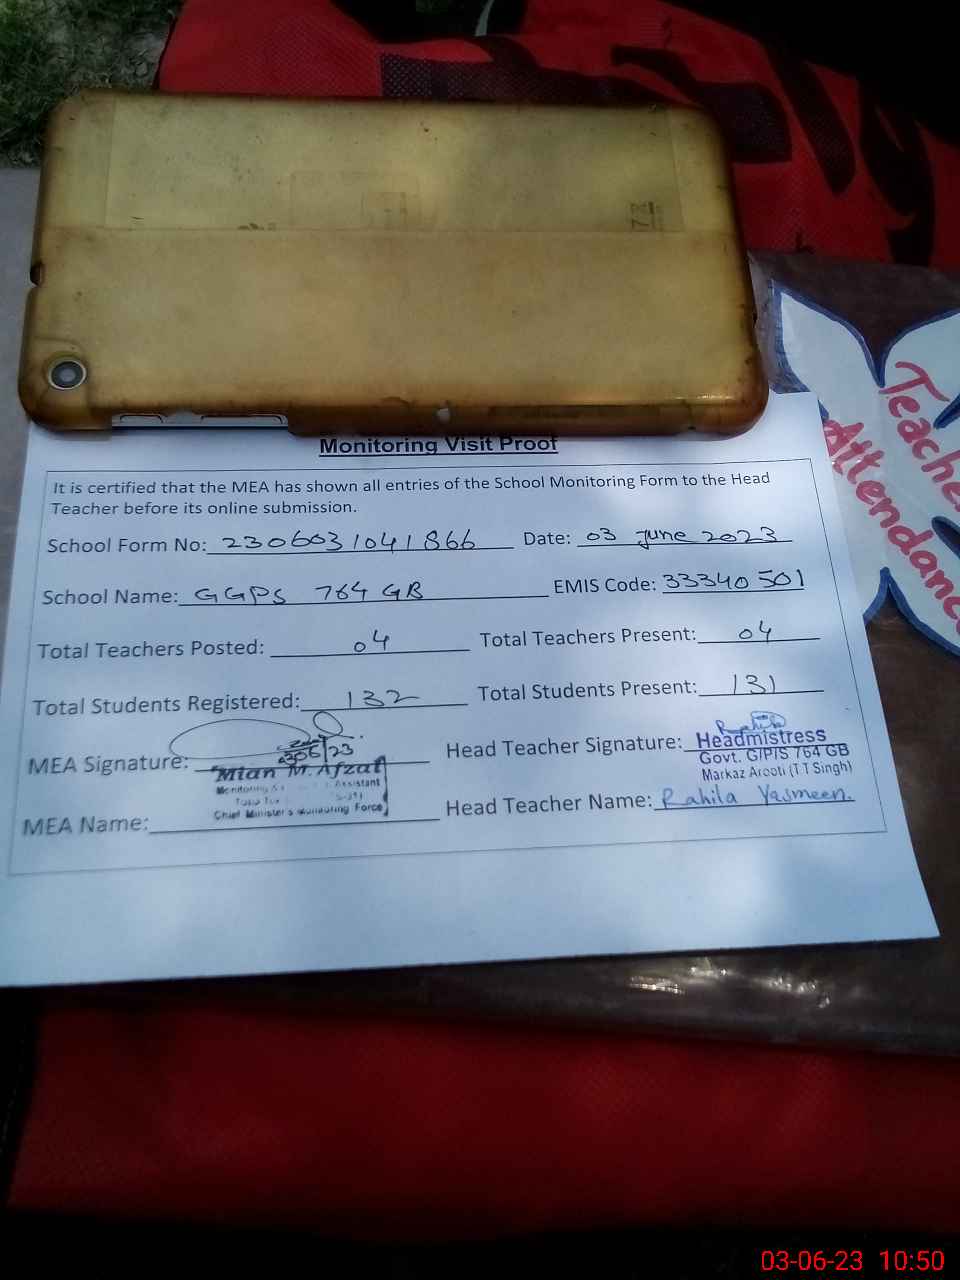 Monitoring Visit Proof
It is certified that the MEA has shown all entries of the School Monitoring Form to the Head
Teacher before its online submission.
School Form No: 2306031041866 Date: 03 June 2023
School Name: GGPS 764 GB EMIS Code: 33340501
Total Teachers Posted: 04 Total Teachers Present: 04
Total Students Registered: 132 Total Students Present: 131
MEA Signature: Head Teacher Signature: Rahila
Headmistress
Govt. G/P/S 764 GB
Markaz Arooti (T.T Singh)
Mian M. Afzal
Monitoring Assistant
Chief Minister's Monitoring Force
MEA Name: Head Teacher Name: Rahila Yasmeen.
Teacher
Attendance
03-06-23 10:50